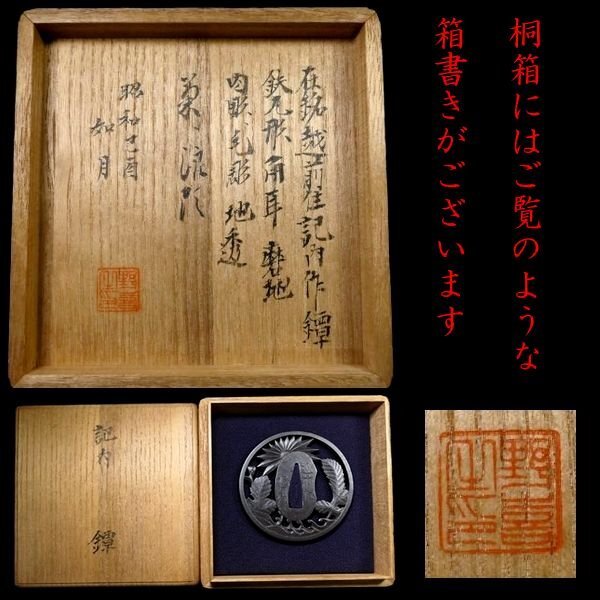 桐箱にはご覧のような
箱書きがございます
在銘越前住記内作鐔
鉄丸形角耳磨地
肉彫毛彫地透
昭和己酉
如月
記内
鐔